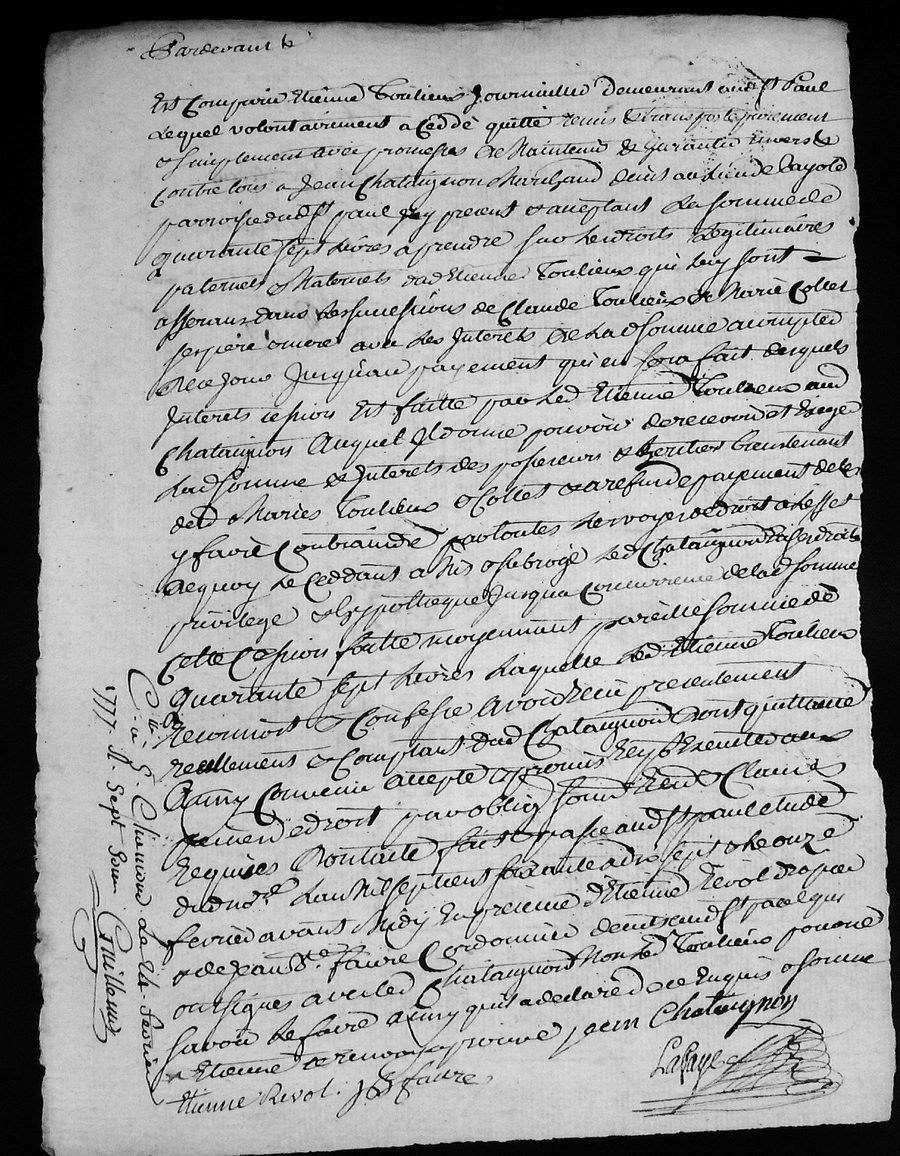 Pardevant &
Est Comparu Etienne Toulieux Journallier Demeurant aud St Paul
Lequel volontairement a Ceddé quitté remis & transporté purement
& simplement avec promesses de Maintenir & garantir Envers &
Contre tous a Jean Chataignon Marchand demt au lieu de
parroisse dud St paul Icy present & acceptant La somme de
quarante sept Livres a prendre sur Les droits Legitimaires
paternels & Maternels dud Etienne Toulieux qui Luy sont
asseruns dans Les successions de Claude Toulieux & Marie Collet
ses pere & mere avec Les Interets de La d somme a compter
de ce Jour Jusqu'au payement qui en sera fait desquels
Interets cession Est faitte par Led Etienne Toulieux aud
Chataignon Auquel Il donne pouvoir de recevoir et Exiger
Lad somme & Interets des possesseurs & heritier bientenant
desd Mariés Toulieux & Collet & a refus de payement de Les
y faire Contraindre par toutes Les voyes de droit a Leffet
de quoy Le Ceddant a Mis & subrogé Led Chataignon En ses droits
privilege & hyppotheque Jusqua Concurrence de lad somme
Cette Cession faitte moyennant pareille somme de
quarante sept Livres Laquelle Led Etienne Toulieux
reconnoit & Confesse avoir reçu presentement
reellement & Comptant dud Chataignon dont quittance
Ainsy Convenu accepté & promis Executter aux
peines de droit par oblig soum Renon & Clauses
Requises Dont acte fait & passé aud St paul etude
dud nore Lan Mil sept cent soixante & dix sept & Le onze
fevrier avant Midy En presence d'Etienne Revol drapier
& de Jean Bte Faure Cordonnier demts aud St paul qui
ont signés avec led Chataignon Non Led Toulieux pour ne
savoir Le faire Ainsy quil a declaré de ce Enquis & sommé
Etienne & renvoy approuvé Jean Chataignon
Etienne Revol. J B faure
Lafaye
C. lé. à St. Chamond Le 24. fevrier
1777. R. Sept sous Guillemin